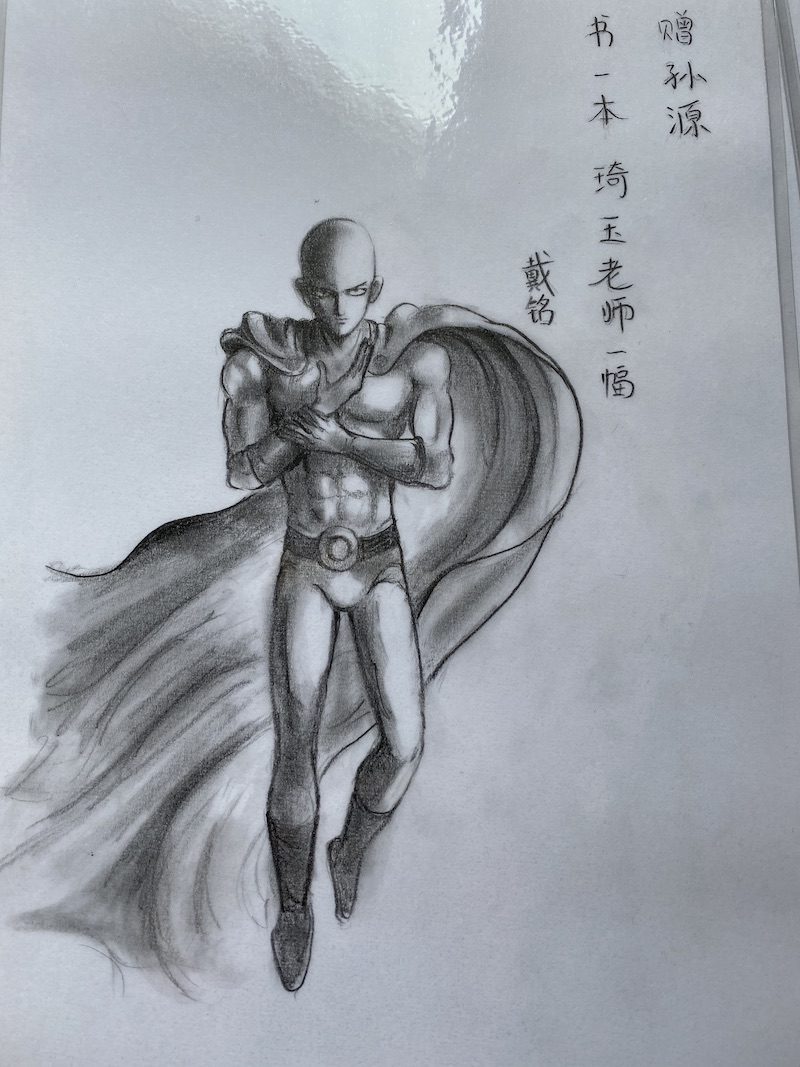 赠孙源
书一本 琦玉老师一幅
戴铭